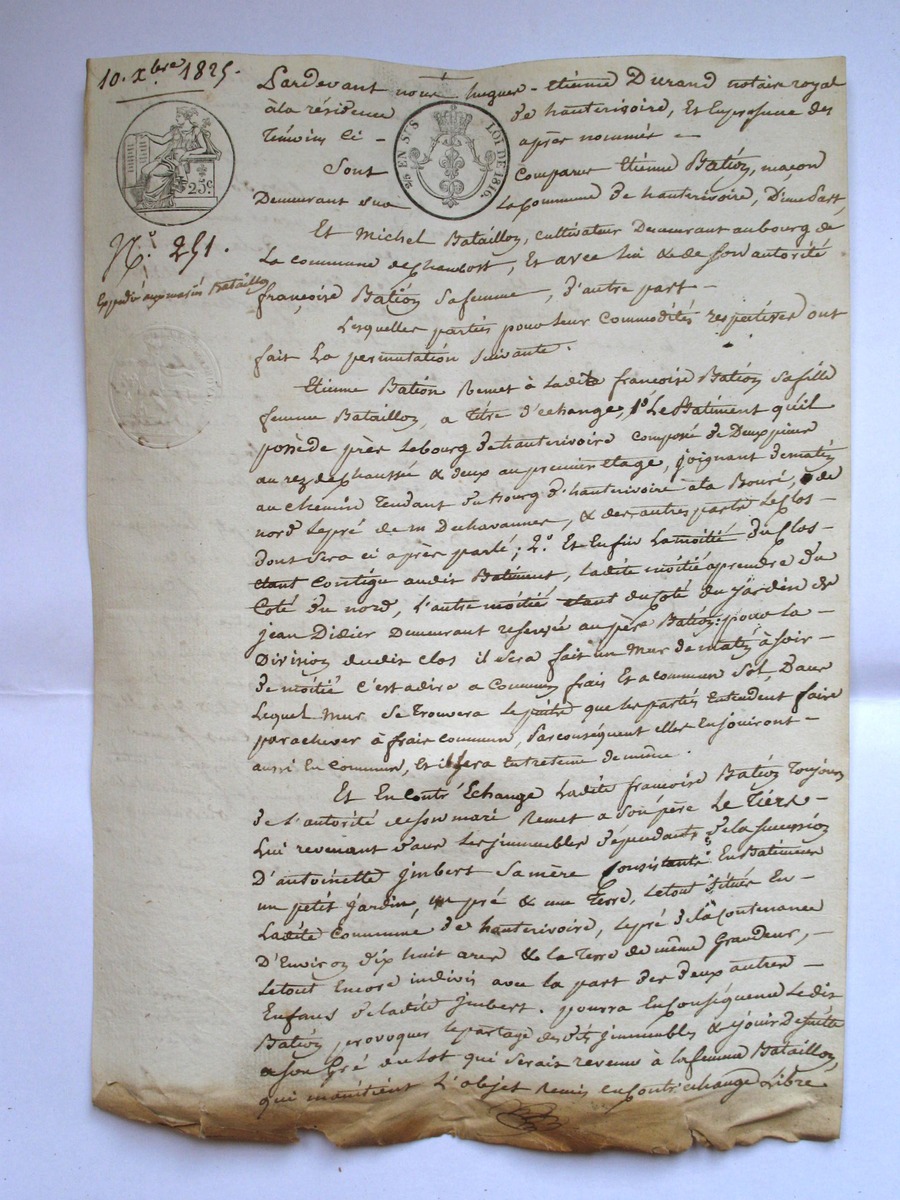 10. Xbre 1825.
Pardevant nous hugues - Etienne Durand notaire royal
à la résidence de hauterivoire, Et En présence des
Témoins Ci - après nommés -
Sont Comparus Etienne Bation, maçon
Demeurant sur la Commune de hauterivoire, D'une part,
25 EN SUS LOI DE 1816
25c
N.° 251.
Expédié aux mariés Bataillon
Et Michel Bataillon, cultivateur Demeurant au bourg de
La commune de Chambost, Et avec lui & de Son autorité
françoise Bation Sa femme, D'autre part -
Lesquelles parties pour leur Commodités respectives ont
fait La permutation Suivante.
Etienne Bation Remet à Ladite françoise Bation Sa fille
femme Bataillon, a titre d'échange, 1.° Le Batiment qu'il
possède près Le bourg de hauterivoire composé de Deux pieces
au rez de Chaussée & deux au premier Etage, joignant de matin
au chemin Tendant du Bourg d'hauterivoire à la Bouré, de
nord Le pré de m Dechavannes, & des autres parts Le Clos
dont Sera ci après parlé; 2.° Et Enfin La moitié du Clos
Etant Contigu audit Batiment, Ladite moitié a prendre du
Coté du nord, L'autre moitié étant du Coté du jardin de
jean Didier Demeurant reservée au père Bation: pour La
Division dudit Clos il Sera fait un Mur de matin à Soir
de moitié c'est a dire a Commun frais Et a commun Sol, Dans
Lequel Mur Se Trouvera Le puits que les parties Entendent faire
parachever à frais commun, Par conséquent elles En jouiront
aussi En Commun, Et il Sera Entretenu de même.
Et En Contr'Echange Ladite françoise Bation Toujours
de L'autorité de son mari Remet a Son père Le Tiers
Lui revenant dans Les jmmeubles dépendants de la Succession
D'antoinette jmbert Sa mère Consistants En Batiments
un petit jardin, un pré & une Terre, Le tout Situés En
Ladite Commune de hauterivoire, Le pré de La Contenance
D'Environ dix huit ares & La Terre de même Grandeur,
Le tout Encore indivis avec la part des deux autres
Enfans de Ladite jmbert. pourra En Conséquence Ledit
Bation, provoquer Le partage desdits jmmeubles & jouir De Suite
a Son Gré du Lot qui Serait revenu à La femme Bataillon,
qui maintient L'objet Remis en Contr'échange Libre